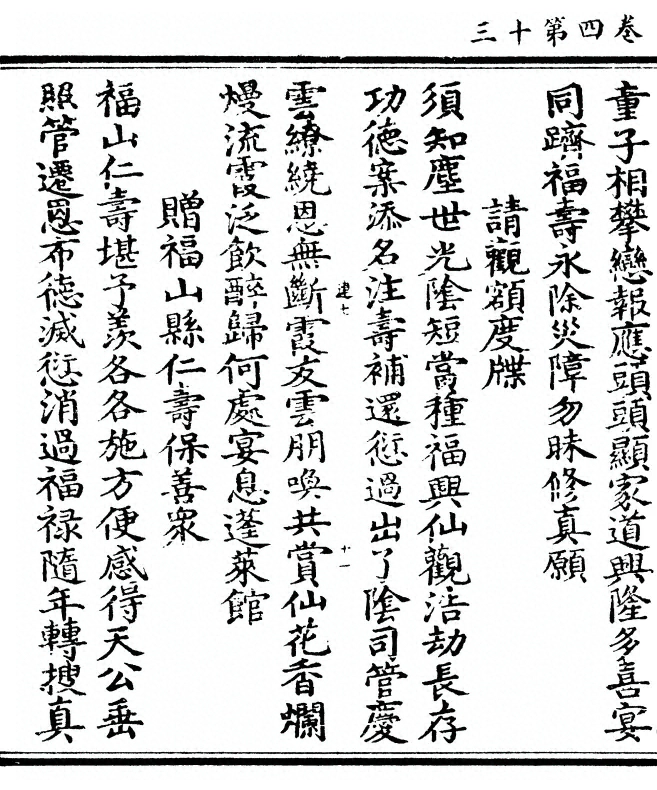 三十第四卷
童子相攀戀報應頭頭顯家道興隆多喜宴
同躋福壽永除災障勿昧修真願
請觀額度牒
須知塵世光陰短當種福興仙觀浩劫長存
功德案添名注壽補還愆過出了陰司管慶
雲繚繞恩無斷霞友雲朋喚共賞仙花香爛
熳流霞泛飲醉歸何處宴息蓬萊館
贈福山縣仁壽保善衆
福山仁壽堪予羨各各施方便感得天公垂
照管遷恩布德滅愆消過福祿隨年轉搜真
十一